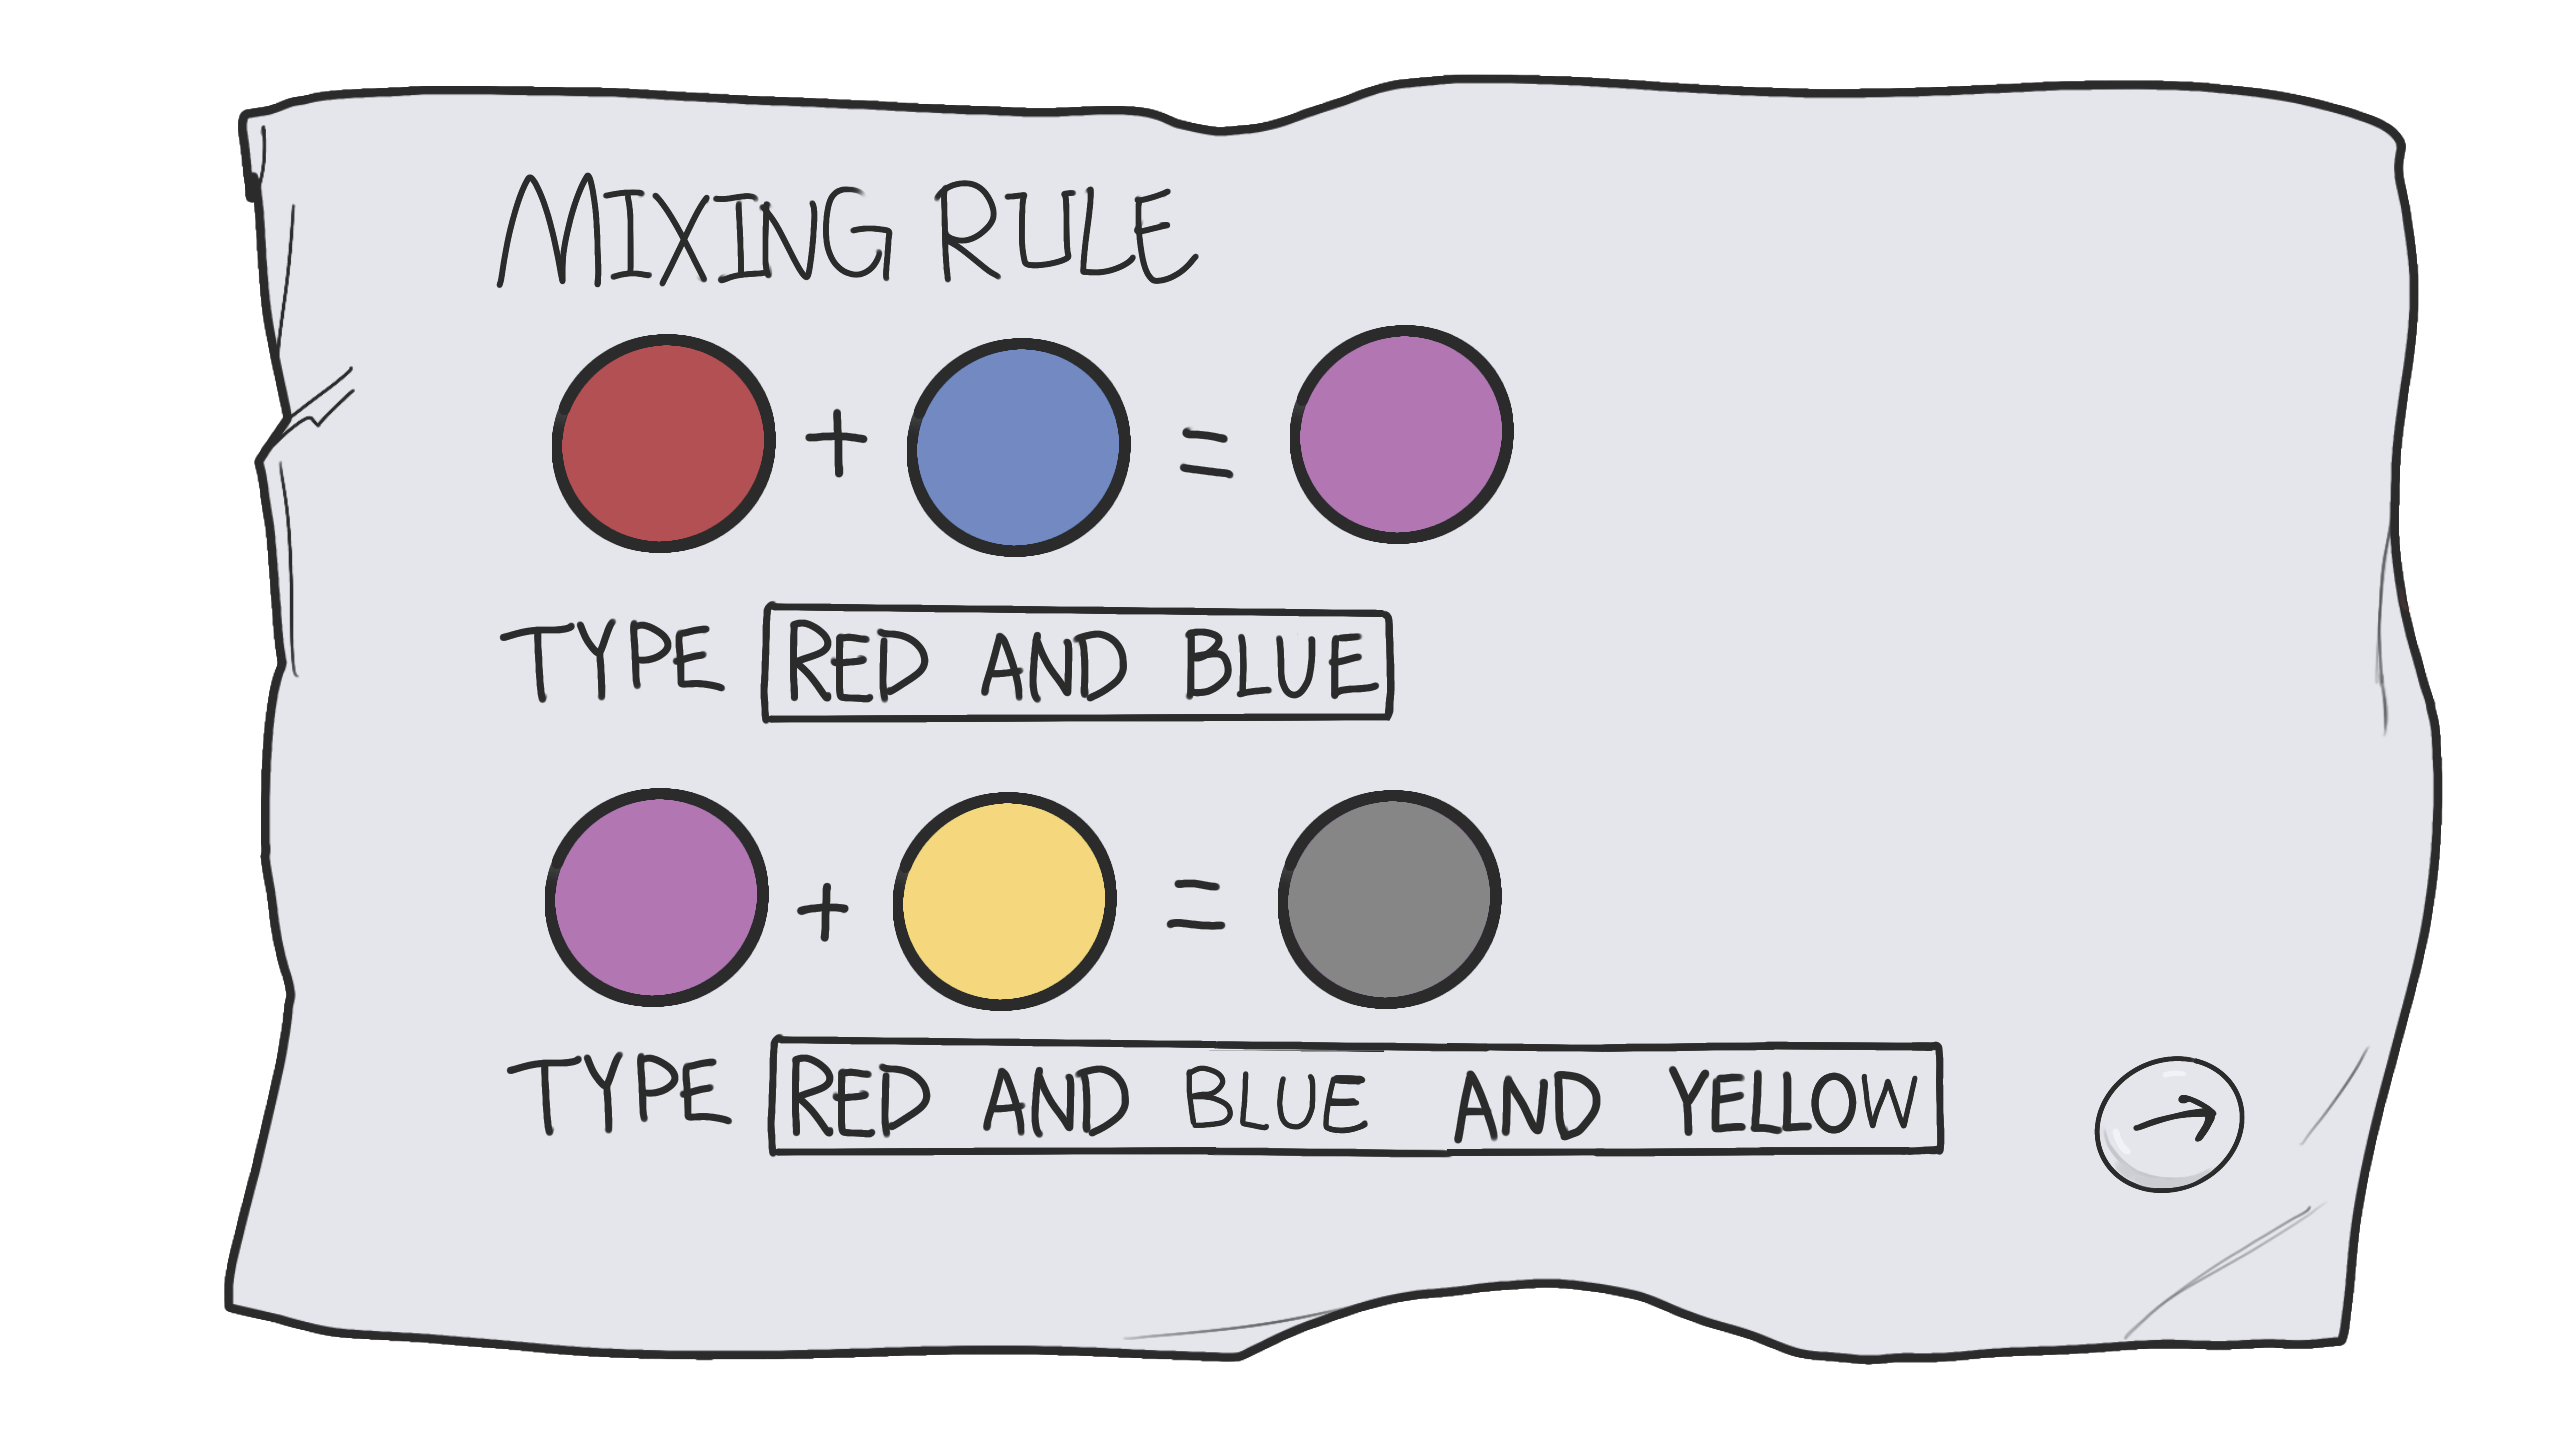 MIXING RULE
+ =
TYPE RED AND BLUE
+ =
TYPE RED AND BLUE AND YELLOW